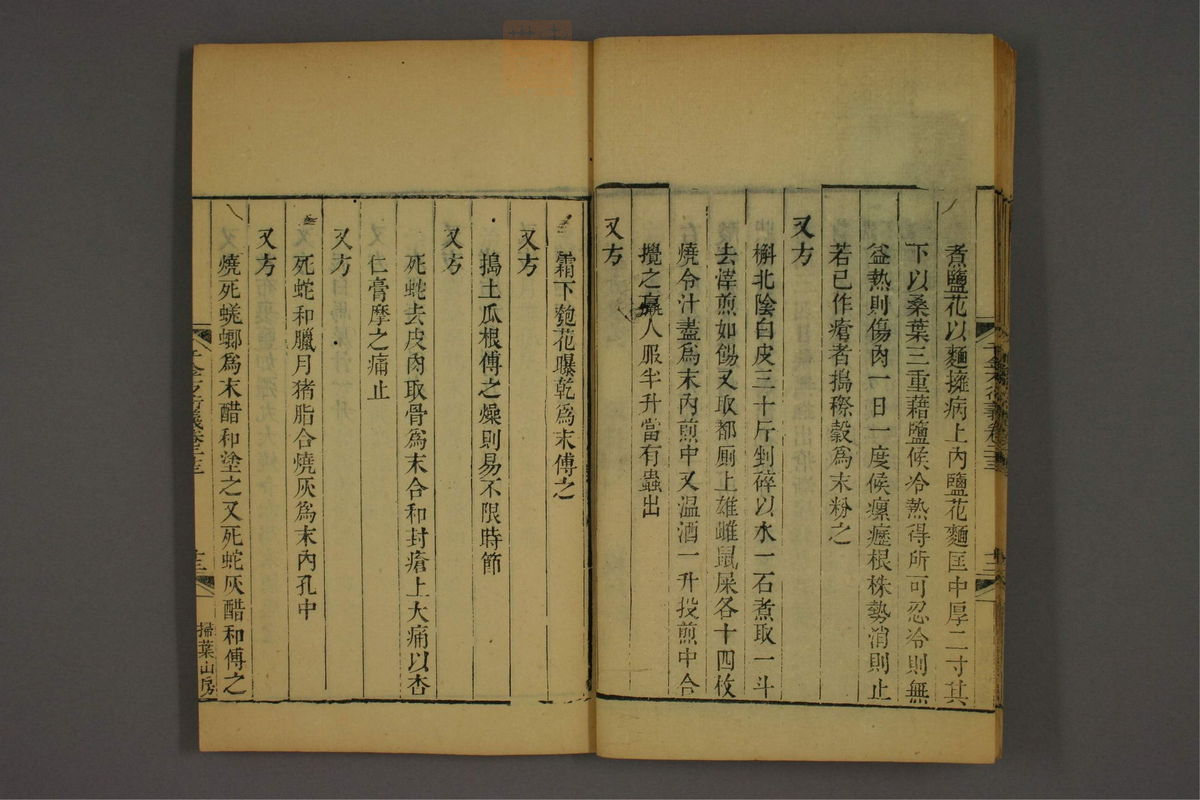 煮鹽花以麵擁病上內鹽花麵匡中厚二寸其
下以桑葉三重藉鹽候冷熱得所可忍冷則無
益熱則傷肉一日一度候瘰癧根株勢消則止
若已作瘡者搗穄穀為末粉之
又方
槲北陰白皮三十斤剉碎以水一石煮取一斗
去滓煎如餳又取都厠上雄雌鼠屎各十四枚
燒令汁盡為末內煎中又温酒一升投煎中合
攪之羸人服半升當有蟲出
又方
霜下匏花曝乾為末傅之
又方
搗土瓜根傅之燥則易不限時節
又方
死蛇去皮肉取骨為末合和封瘡上大痛以杏
仁膏摩之痛止
又方
死蛇和臘月猪脂合燒灰為末內孔中
又方
燒死蜣螂為末醋和塗之又死蛇灰醋和傅之
千金方衍義卷二十三
十三
掃葉山房